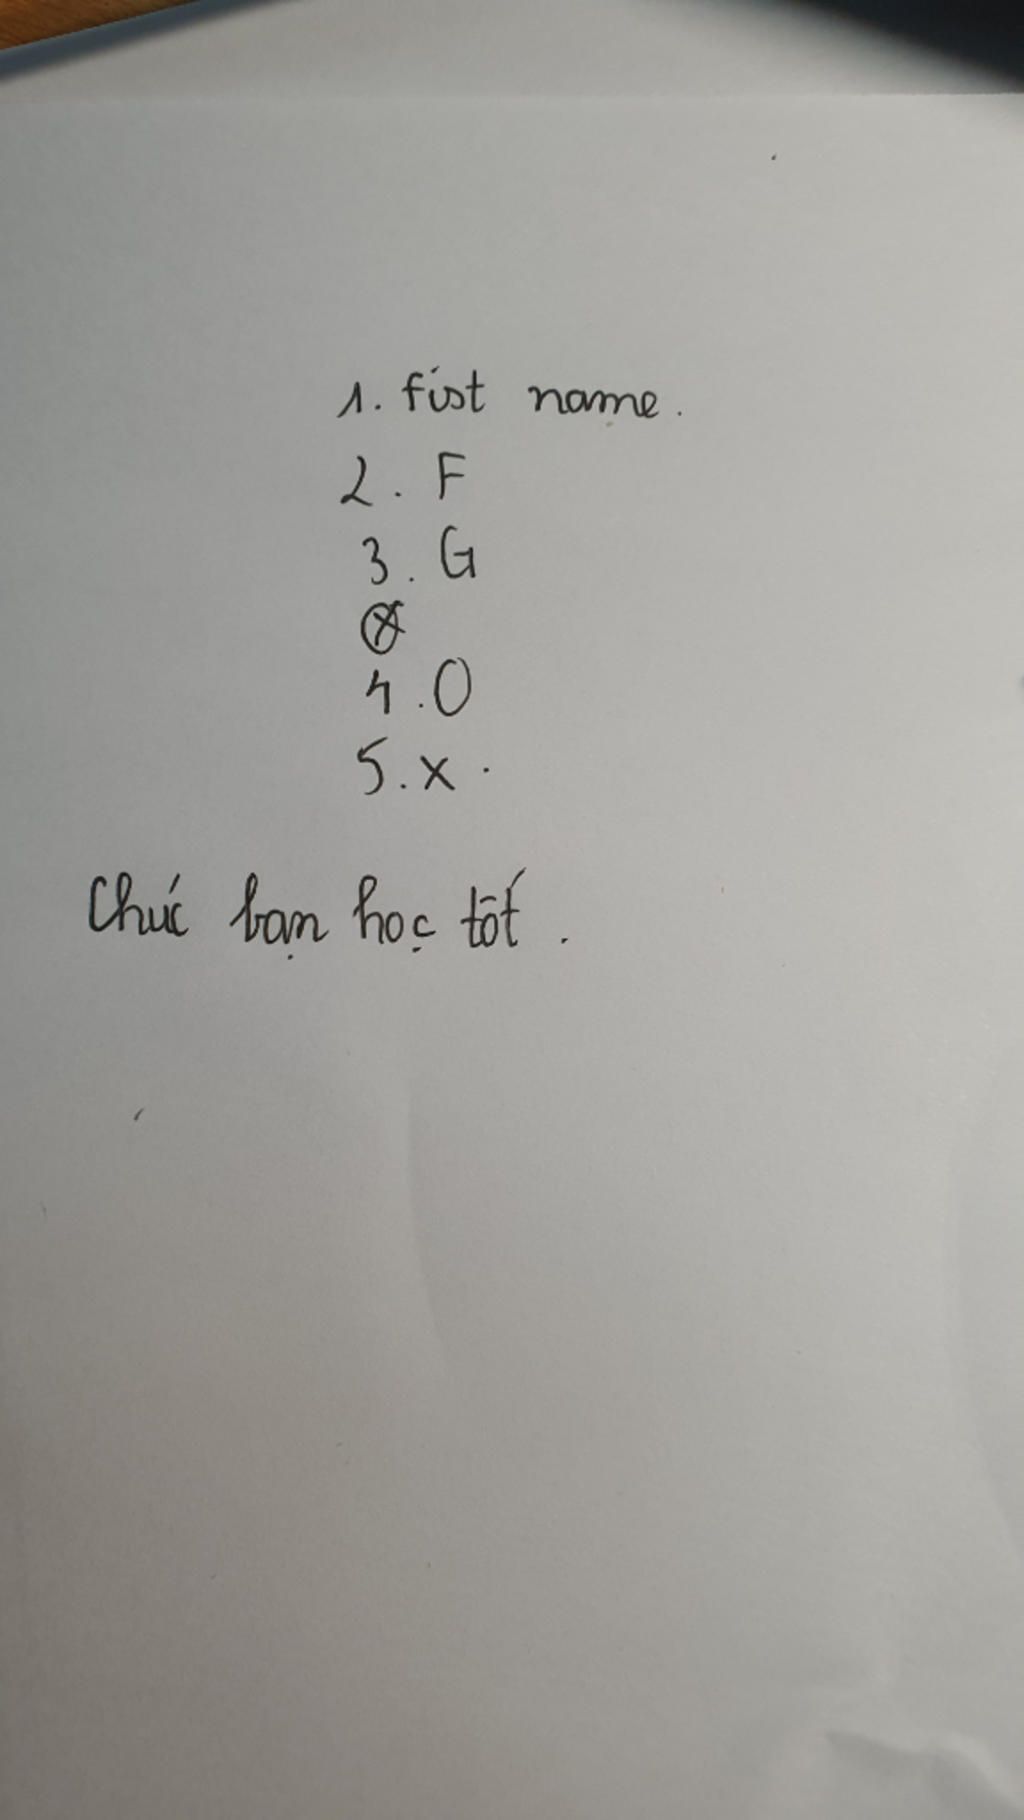 1. fist name.
2. F
3. G
4. O
5. x.
Chúc bạn học tốt.